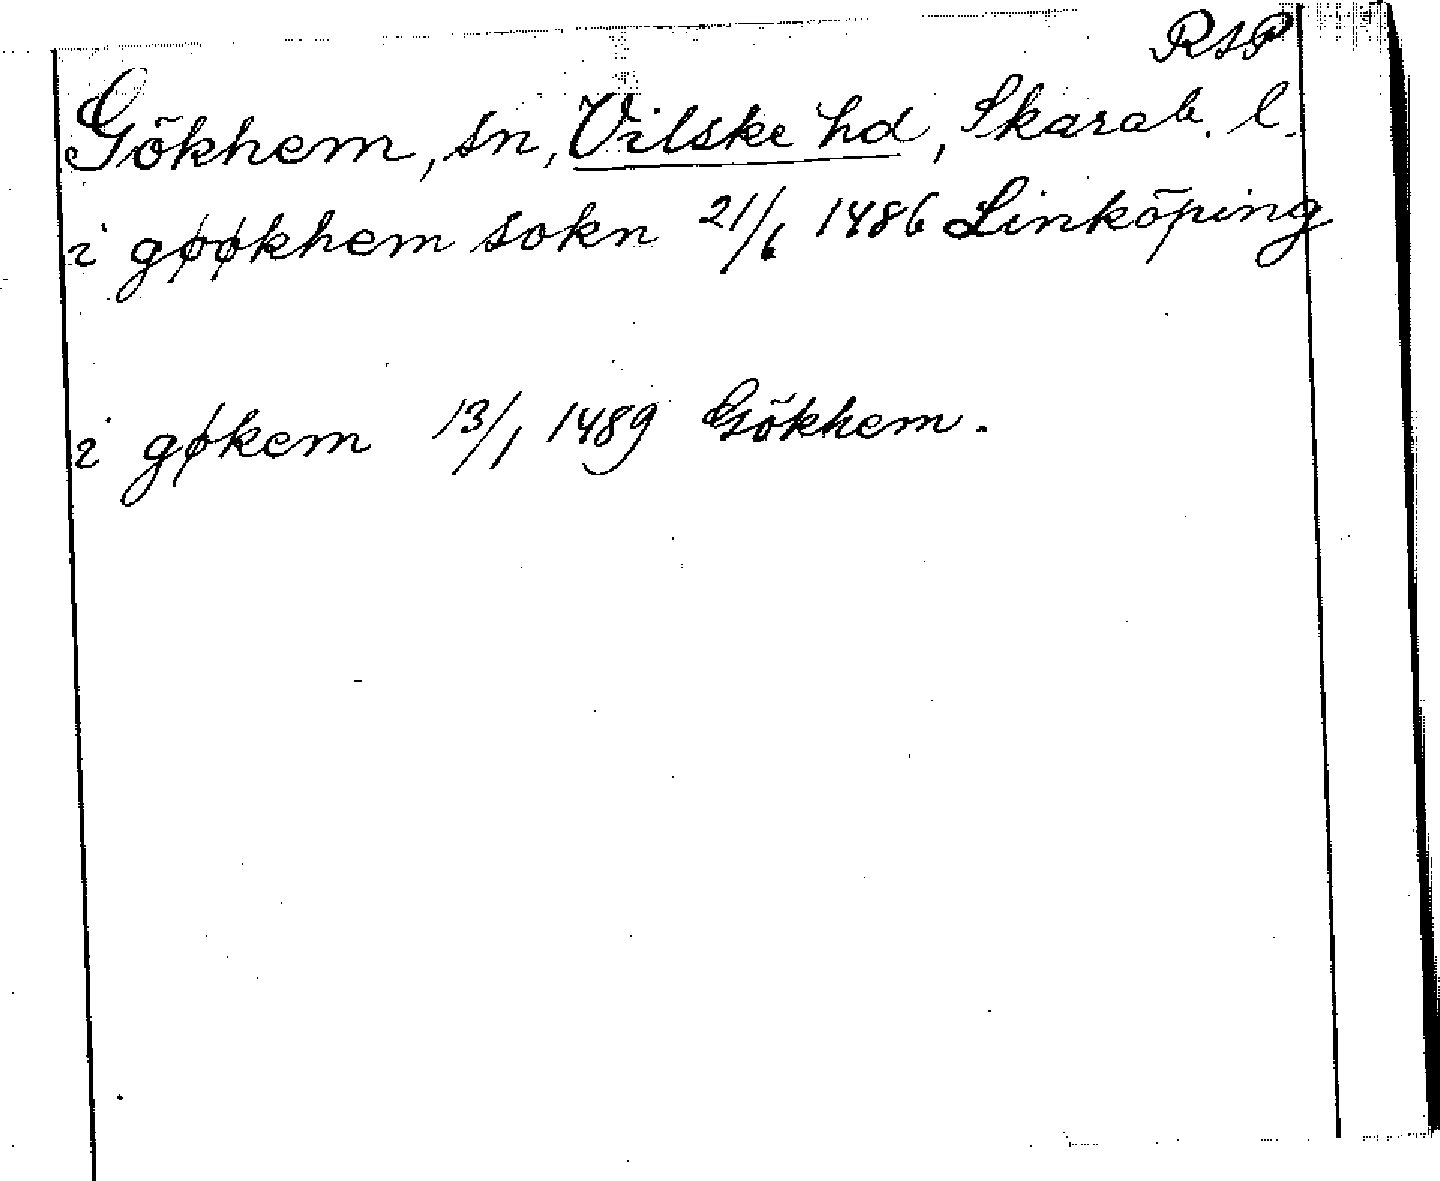 RAP
Gökhem, sn, Vilske hd, Skarab. l.
i gøøkhem sokn 21/6 1486 Linköping
i gøkem 13/1 1489 Gökhem.